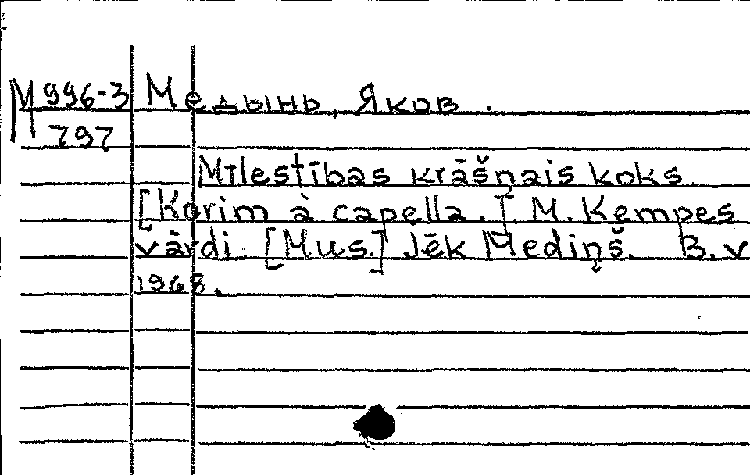 М 996-3 Медынь, Яков.
797
Mīlestības krāšņais koks
[Korim à capella.] M. Ķempes
vārdi. [Mus.] Jēk Mediņš. B.v
1968.